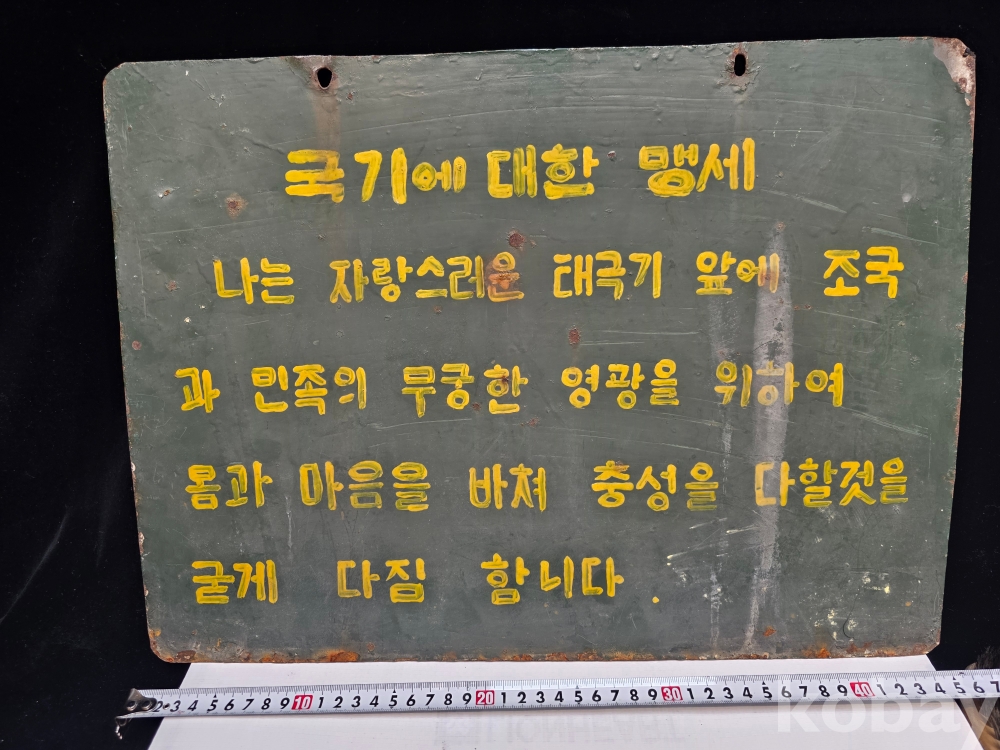 국기에 대한 맹세
나는 자랑스러운 태극기 앞에 조국
과 민족의 무궁한 영광을 위하여
몸과 마음을 바쳐 충성을 다할것을
굳게 다짐 함니다.
3 4 5 6 7 8 9 10 1 2 3 4 5 6 7 8 9 20 1 2 3 4 5 6 7 8 9 30 1 2 3 4 5 6 7 8 9 40 1 2 3 4 5 6 7
kobay
LIONHEART